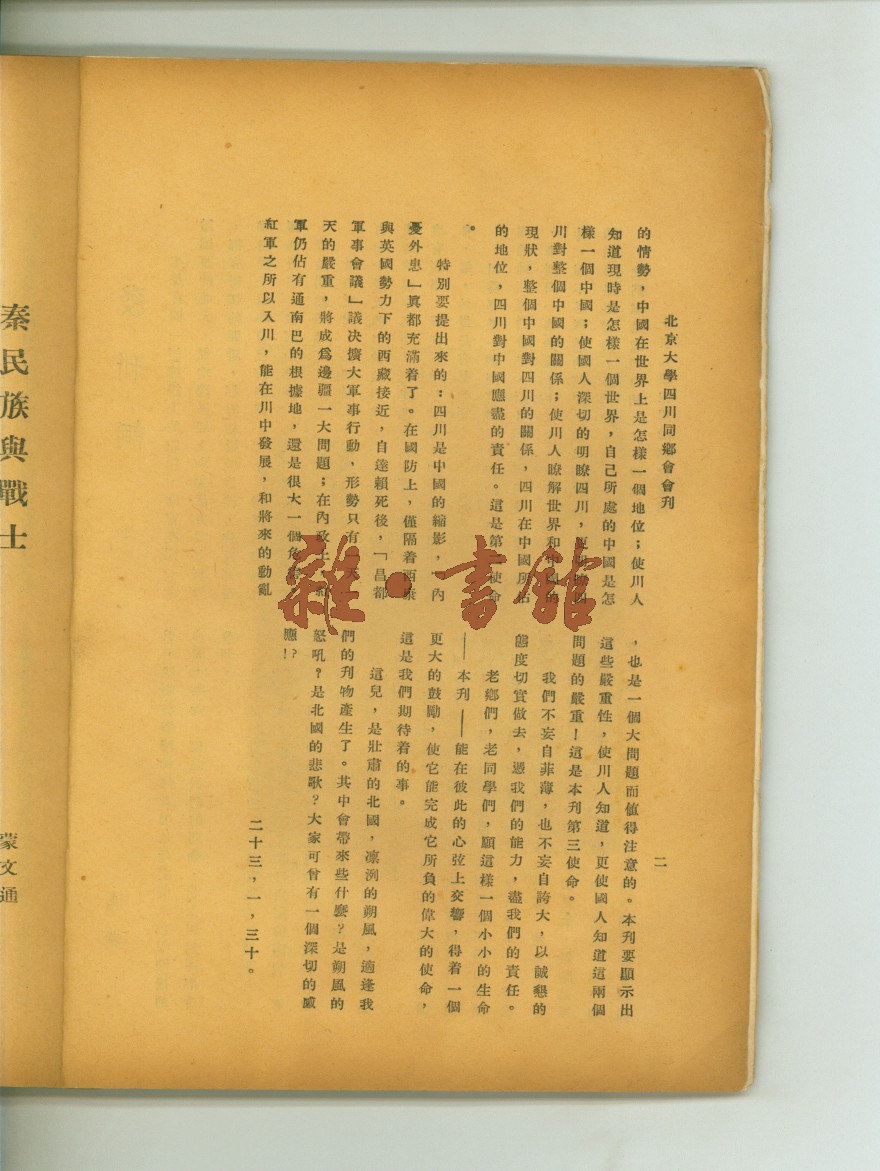 北京大學四川同鄉會會刊
二
的情勢，中國在世界上是怎樣一個地位；使川人
知道現時是怎樣一個世界，自己所處的中國是怎
樣一個中國；使國人深切的明瞭四川，更明瞭四
川對整個中國的關係；使川人瞭解世界和中國的
現狀，整個中國對四川的關係，四川在中國所佔
的地位，四川對中國應盡的責任。這是第一使命
。
特別要提出來的：四川是中國的縮影，「內
憂外患」眞都充滿着了。在國防上，僅隔着西康
與英國勢力下的西藏接近，自達賴死後，「昌都
軍事會議」議决擴大軍事行動，形勢只有一天
天的嚴重，將成爲邊疆一大問題；在內政上，紅
軍仍佔有通南巴的根據地，還是很大一個
紅軍之所以入川，能在川中發展，和將來的動亂
，也是一個大問題而値得注意的。本刊要顯示出
這些嚴重性，使川人知道，更使國人知道這兩個
問題的嚴重！這是本刊第三使命。
我們不妄自菲薄，也不妄自誇大，以誠懇的
態度切實做去，憑我們的能力，盡我們的責任。
老鄉們，老同學們，願這樣一個小小的生命
——本刊——能在彼此的心弦上交響，得着一個
更大的鼓勵，使它能完成它所負的偉大的使命，
這是我們期待着的事。
這兒，是壯肅的北國，凛冽的朔風，適逢我
們的刊物產生了。其中會帶來些什麽？是朔風的
怒吼？是北國的悲歌？大家可曾有一個深切的感
應！？
二十三，一，三十。
秦民族與戰士
蒙文通
雜·書館